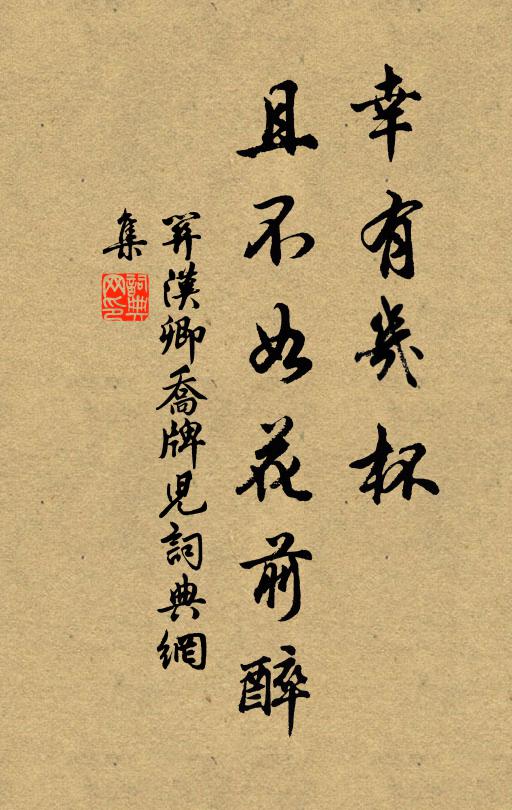 幸有幾杯
且不如花前醉
關漢卿喬牌兒詞典網
集
詞典
网印